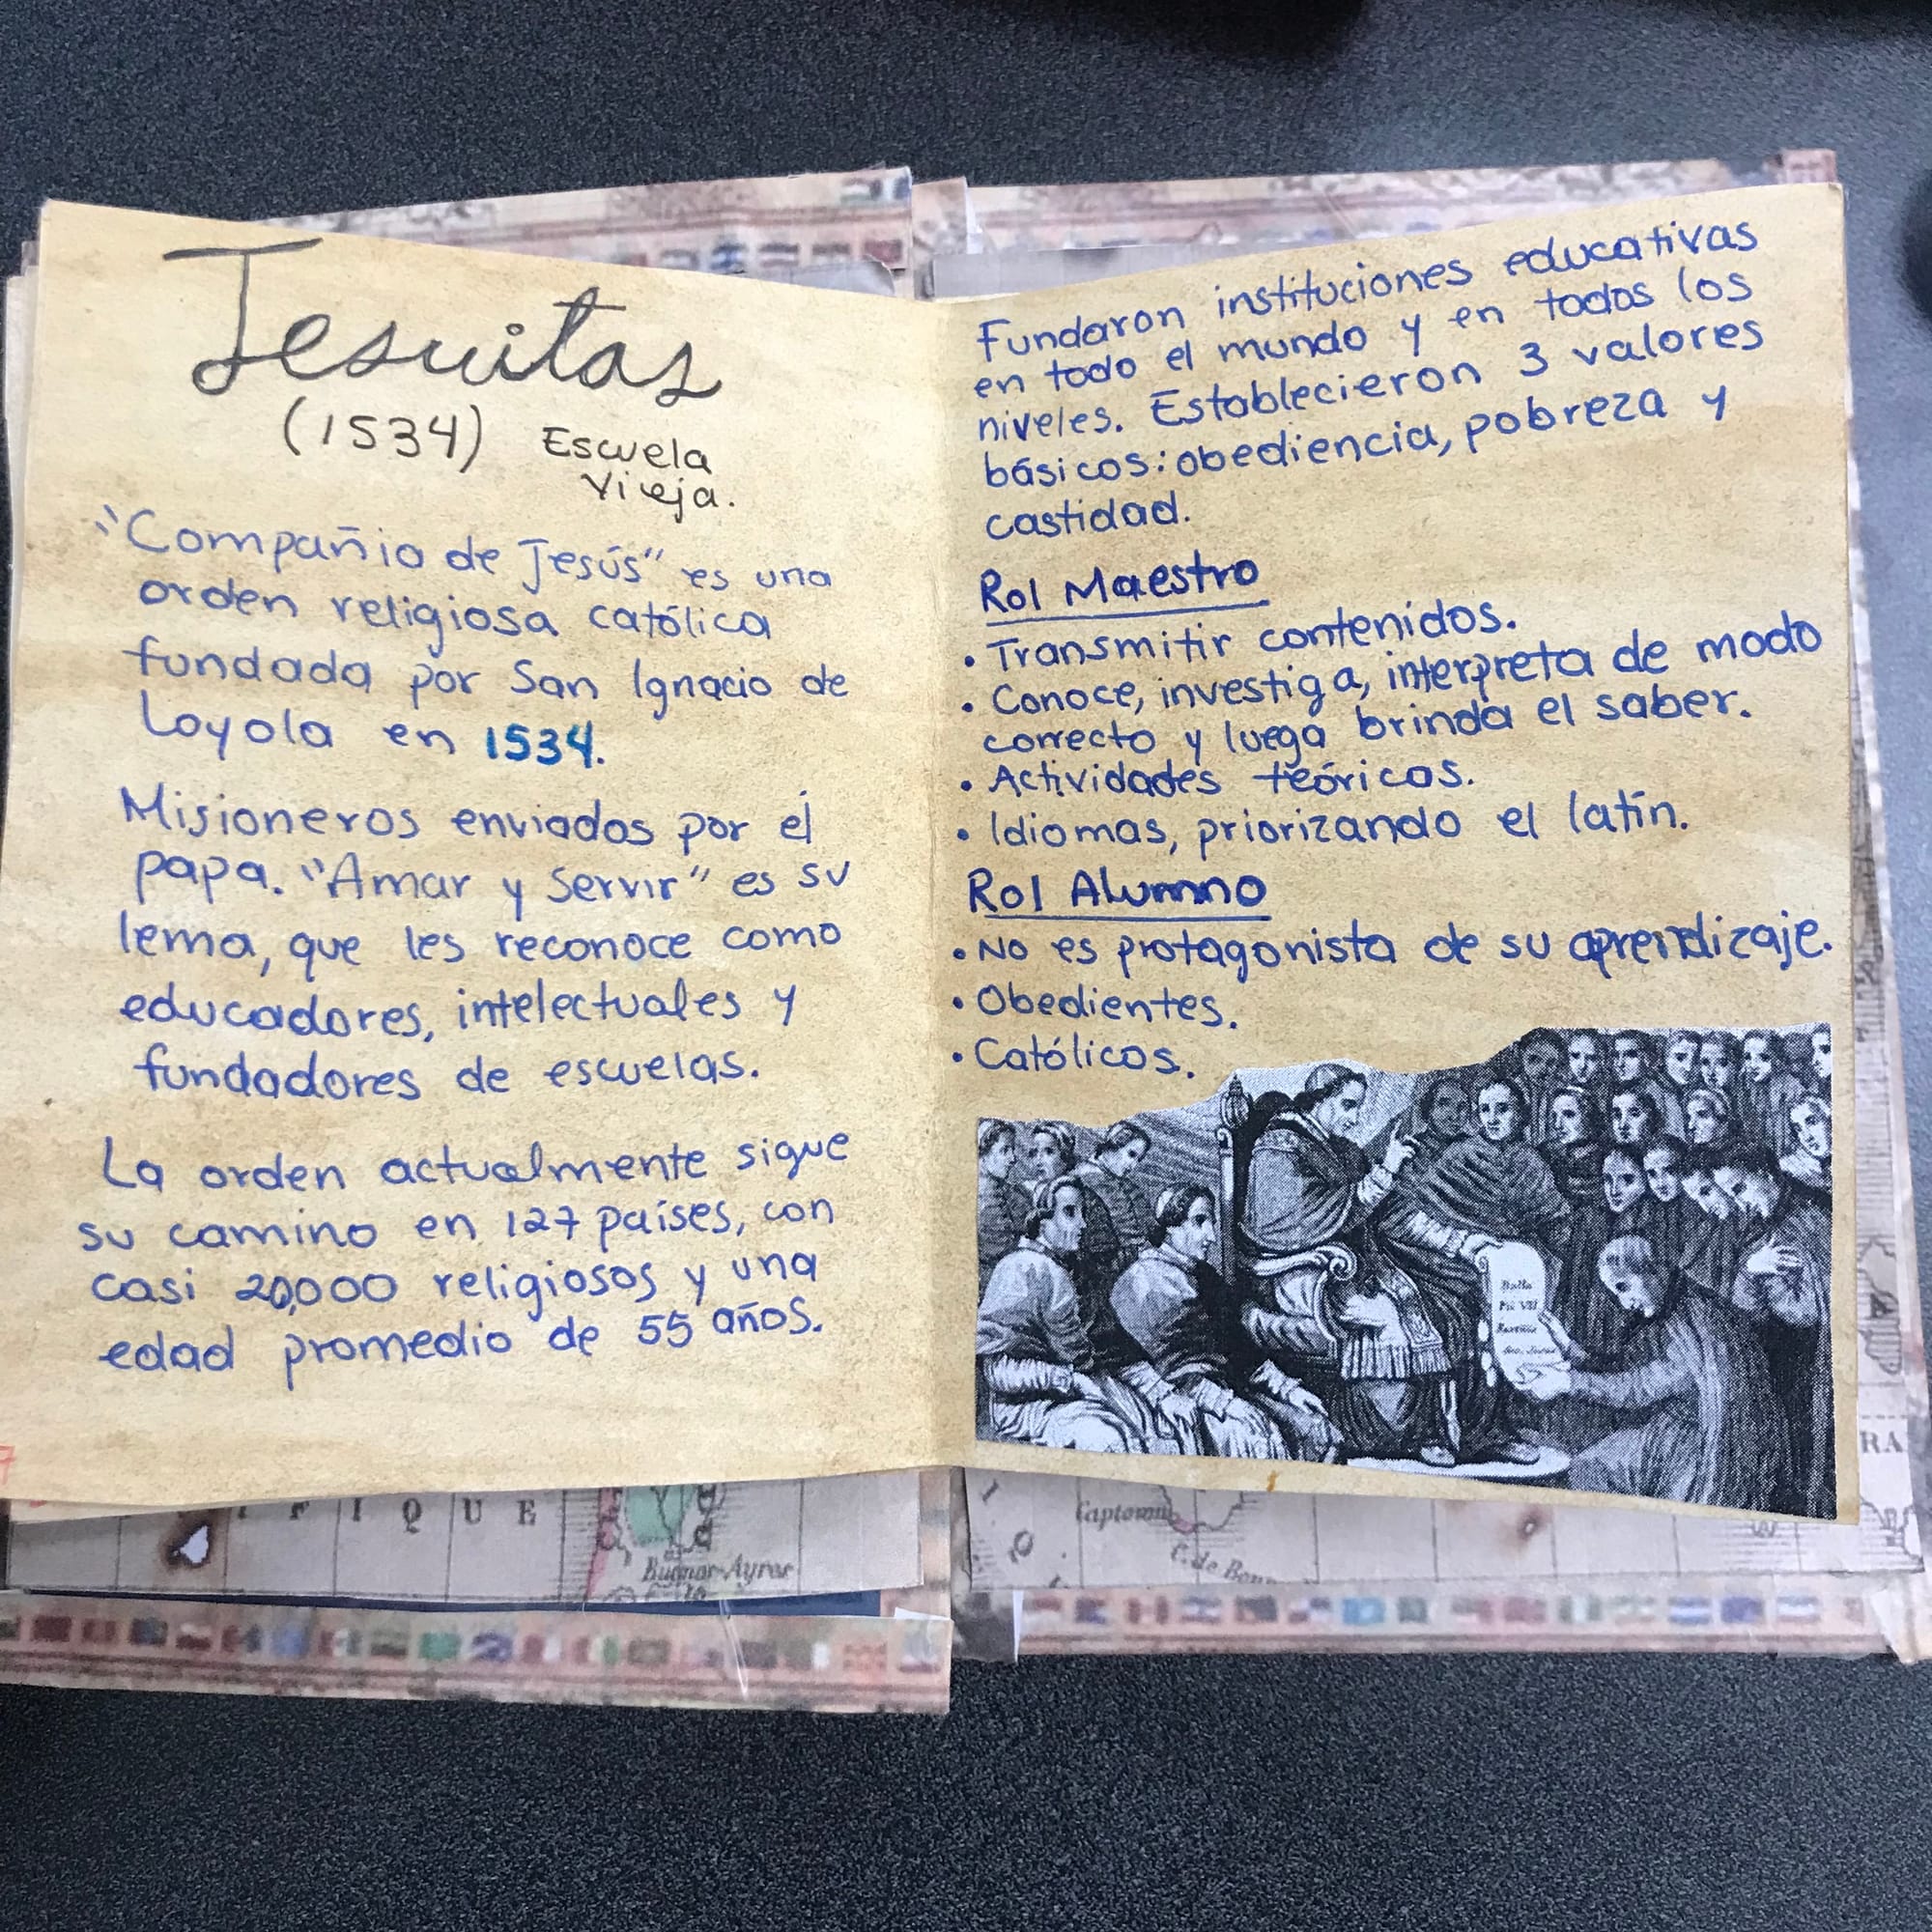 Jesuitas
(1534) Escuela
Vieja.
"Compañia de Jesús" es una
orden religiosa católica
fundada por San Ignacio de
Loyola en 1534.
Misioneros enviados por él
papa. "Amar y Servir" es su
lema, que les reconoce como
educadores, intelectuales y
fundadores de escuelas.
La orden actualmente sigue
su camino en 127 países, con
casi 20,000 religiosos y una
edad promedio de 55 años.
Fundaron instituciones educativas
en todo el mundo y en todos los
niveles. Establecieron 3 valores
básicos: obediencia, pobreza y
castidad.
Rol Maestro
• Transmitir contenidos.
• Conoce, investiga, interpreta de modo
correcto y luego brinda el saber.
• Actividades teóricas.
• Idiomas, priorizando el latín.
Rol Alumno
• No es protagonista de su aprendizaje.
• Obedientes.
• Católicos.
Bulla
Pii VII
F I Q U E
Buenos-Ayres
Captown
C. de Bonn
RA